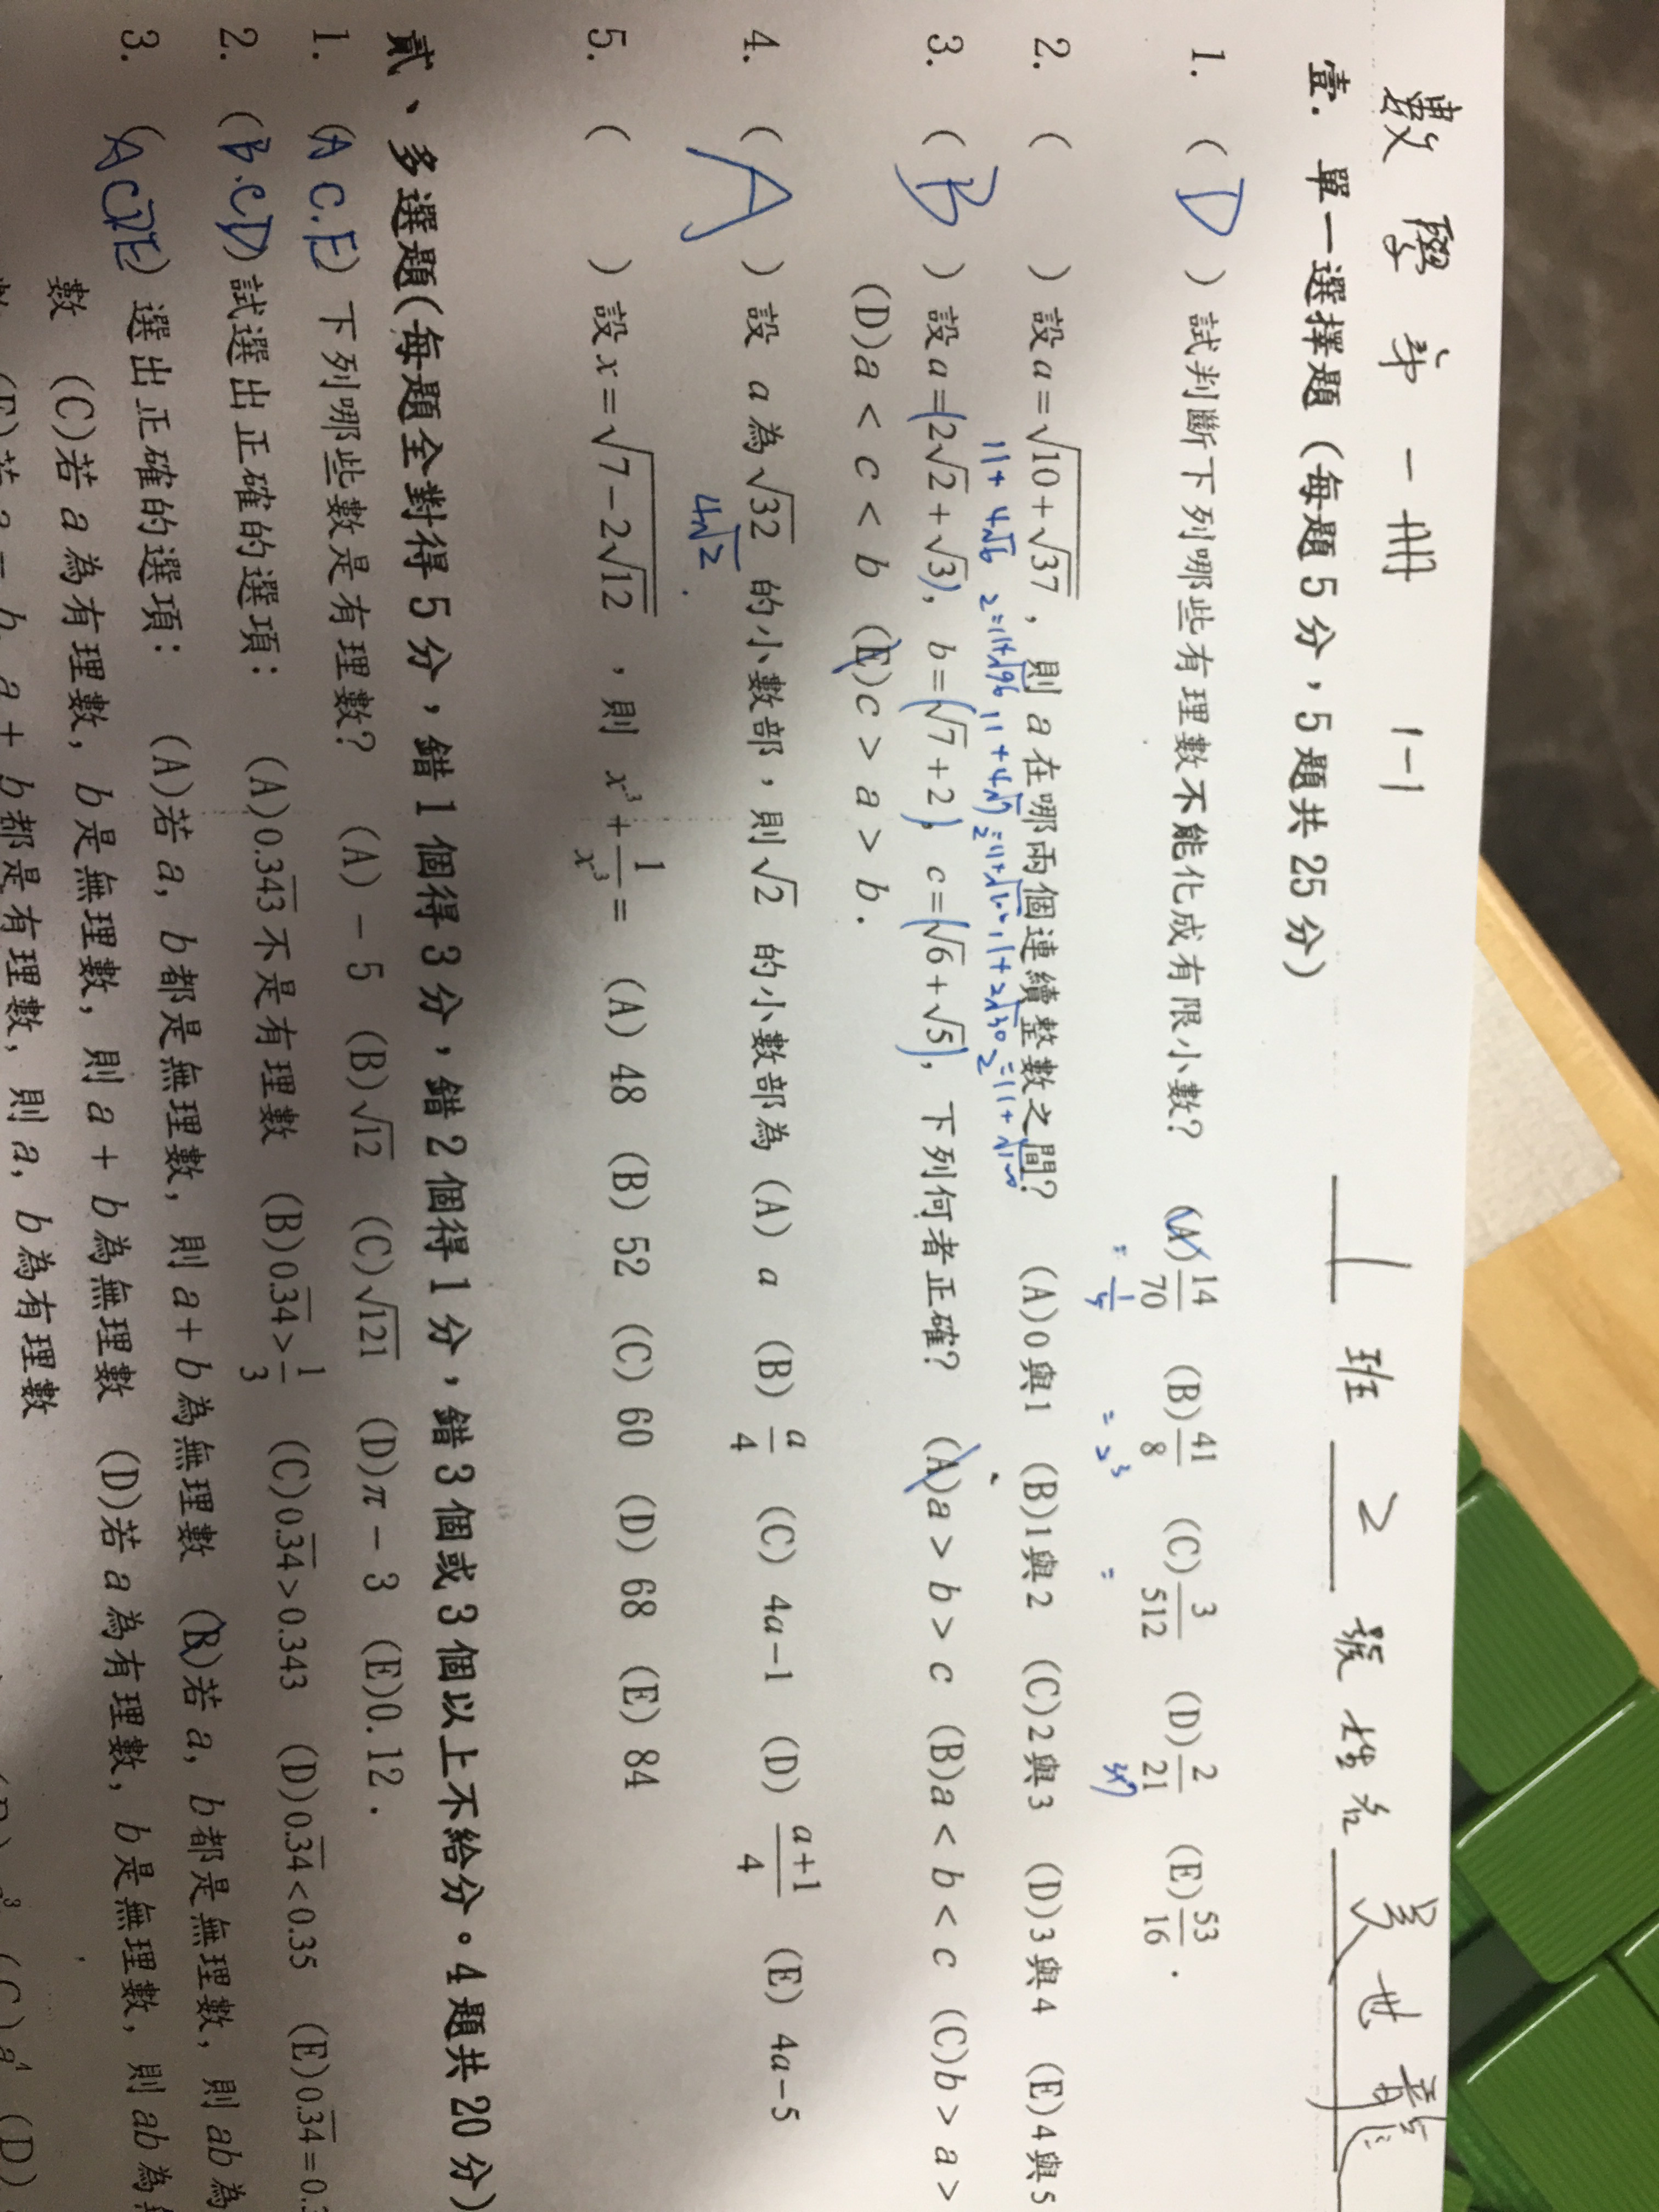 數學 第一冊 1-1 1 班 2 號 姓名 吳世龍
壹. 單一選擇題 (每題 5 分，5 題共 25 分)
1. ( D ) 試判斷下列哪些有理數不能化成有限小數? (A) 14/70 (B) 41/8 (C) 3/512 (D) 2/21 (E) 53/16 .
= 1/5 = 2³ = 3×7
2. ( ) 設 a = √(10+√37) , 則 a 在哪兩個連續整數之間? (A)0與1 (B)1與2 (C)2與3 (D)3與4 (E)4與5
11+4√6 2=11+√96 11+4√7 2=11+√112 11+2√30 2=11+√120
3. ( B ) 設 a=(2√2+√3), b=(√7+2), c=(√6+√5), 下列何者正確? (A)a > b > c (B)a < b < c (C)b > a >
(D)a < c < b (E)c > a > b .
4. ( A ) 設 a 為√32 的小數部，則√2 的小數部為 (A) a (B) a/4 (C) 4a−1 (D) (a+1)/4 (E) 4a−5
4√2
5. ( ) 設 x = √(7−2√12) ，則 x³+1/x³= (A) 48 (B) 52 (C) 60 (D) 68 (E) 84
貳、多選題(每題全對得 5 分，錯 1 個得 3 分，錯 2 個得 1 分，錯 3 個或 3 個以上不給分。4 題共 20 分)
1. (A C.E) 下列哪些數是有理數? (A) − 5 (B)√12 (C)√121 (D)π − 3 (E)0.12 .
2. (B.CD) 試選出正確的選項: (A)0.343̅ 不是有理數 (B)0.3̅4̅ > 1/3 (C)0.3̅4̅ > 0.343 (D)0.3̅4̅ < 0.35 (E)0.3̅4̅ = 0.
3. (ACDE) 選出正確的選項: (A)若 a, b 都是無理數, 則 a + b 為無理數 (B)若 a, b 都是無理數, 則 ab 為
數 (C)若 a 為有理數, b 是無理數, 則 a + b 為無理數 (D)若 a 為有理數, b 是無理數, 則 ab 為
a + b 都是有理數, 則 a, b 為有理數